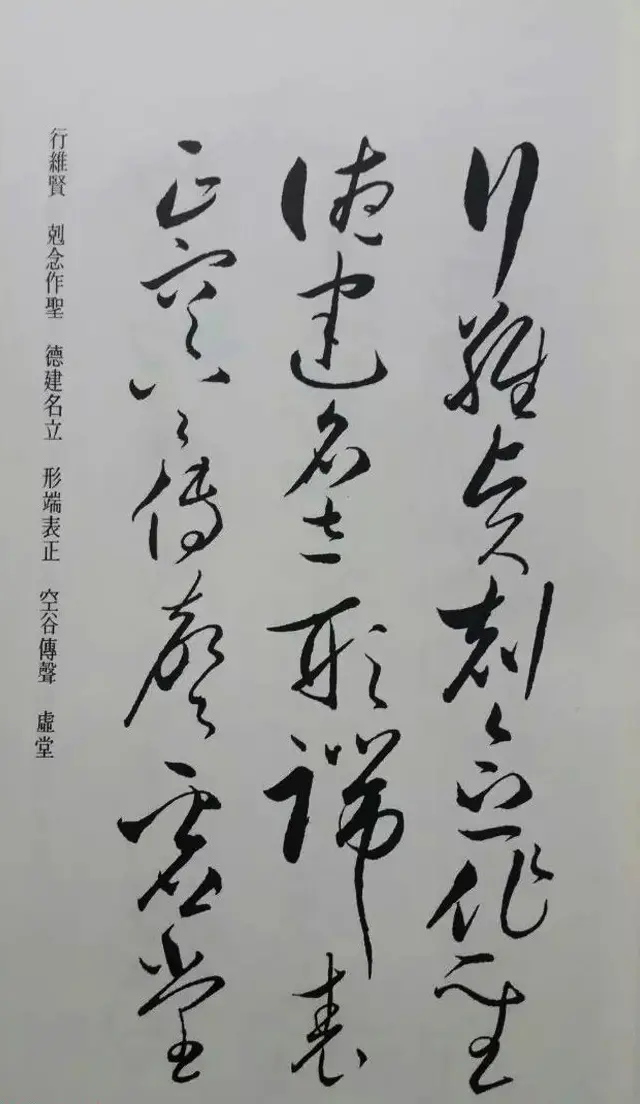 行維賢剋念作聖
德建名立形端表
正空谷傳聲虛堂
行維賢 剋念作聖 德建名立 形端表正 空谷傳聲 虛堂